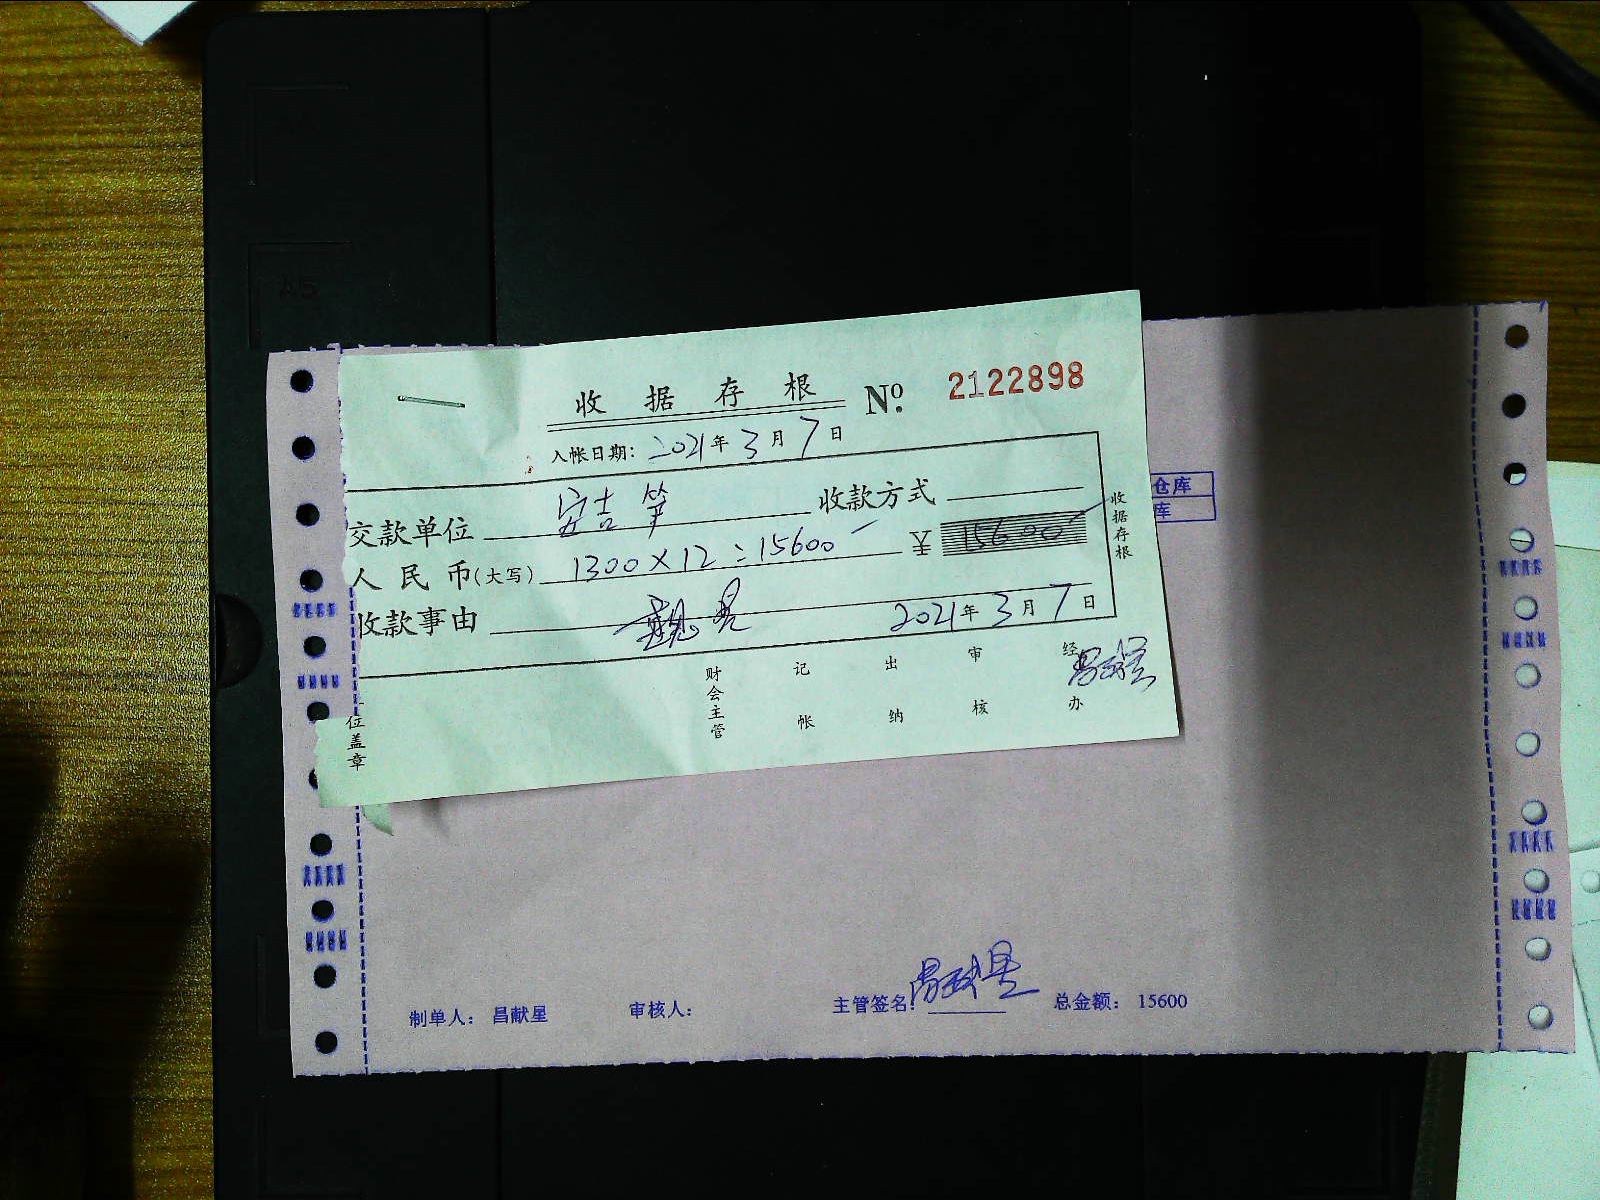 A5
收据存根 Nº. 2122898
入帐日期: 2021年3月7日
交款单位 安吉笋 收款方式
人民币(大写) 1300×12=15600 ¥ 15600
收款事由 2021年3月7日
收据存根
仓库
库
财会主管 记帐 出纳 审核 经办 昌献星
位盖章
制单人: 昌献星 审核人: 主管签名: 昌献星 总金额: 15600